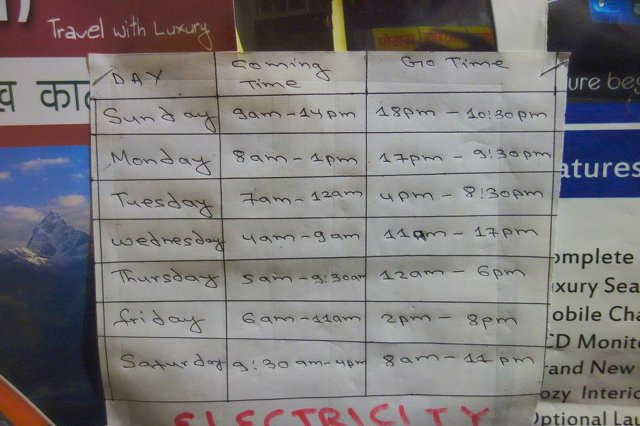 Travel with Luxury
DAY Coming Time Go Time
Sunday 9am-14pm 18pm - 10:30pm
Monday 8am-1pm 17pm - 9:30pm
Tuesday 7am-12am 4pm - 8:30pm
Wednesday 4am-9am 11am - 17pm
Thursday 5am-9:30am 12am - 6pm
friday 6am-11am 2pm - 8pm
Saturday 9:30am-4pm 8am - 11pm
ELECTRICITY
ure beg
atures
omplete
xury Sea
obile Cha
CD Monito
rand New
ozy Interio
Optional Lau